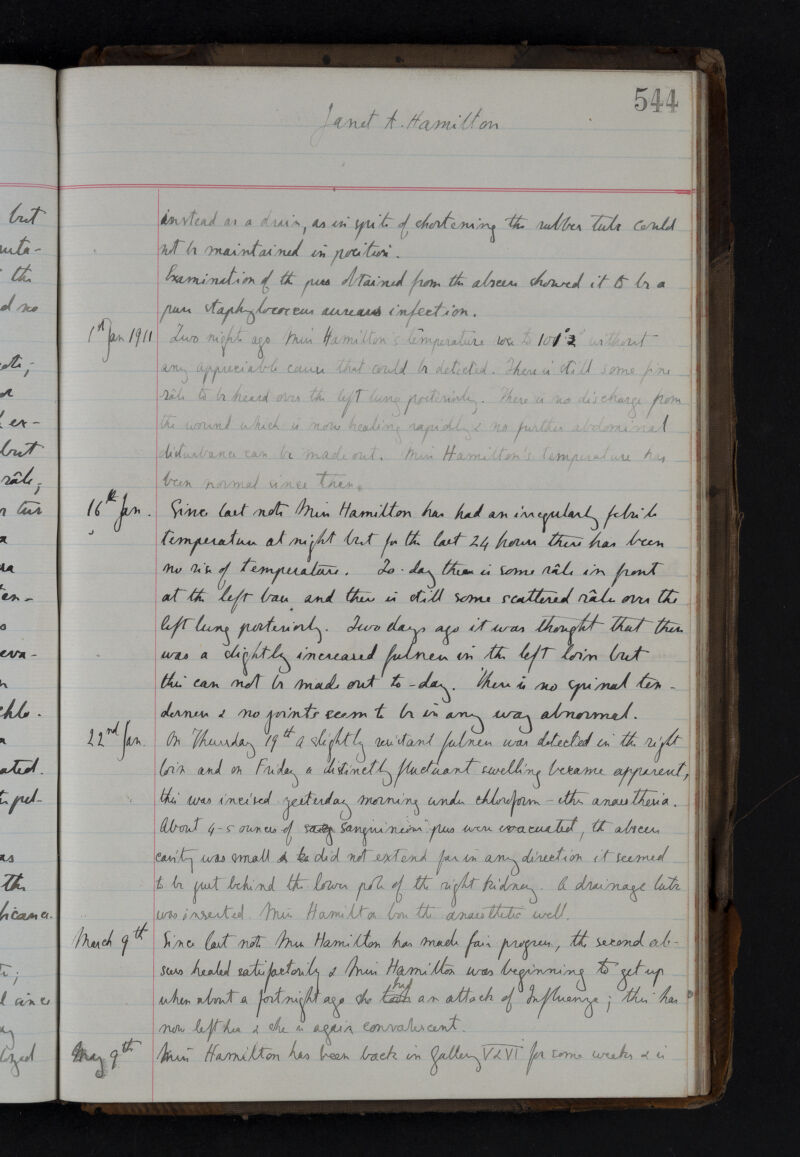 544
Janet A. Hamilton
instead as a drain, as in spite of shortening the rubber tube could
not be maintained in position.
Examination of the pus obtained from the abscess showed it to be a
pure staphylococcus aureus infection.
1st Jan 1911 Two nights ago Miss Hamilton's temperature rose to 101°.2° without
any appreciable cause that could be detected. There is still some fine
râle to be heard over the left lung posteriorly. There is no discharge from
the wound which is now healing rapidly & no further abdominal
disturbance can be made out. Miss Hamilton's temperature has
been normal since then.
16th Jan. Since last note Miss Hamilton has had an irregularly febrile
temperature at night but for the last 24 hours there has been
no rise of temperature. To-day there is some râle in front
at the left base and there is still some scattered râle over the
left lung posteriorly. Two days ago it was thought that there
was a slightly increased fulness in the left loin but
this can not be made out to-day. There is no spinal ten-
derness & no joints seem to be in any way abnormal.
22nd Jan. On Thursday 19th a slightly resistant fulness was detected in the right
loin and on Friday a distinctly fluctuant swelling became apparent,
this was incised yesterday morning under chloroform-ether anaesthesia.
About 4-5 ounces of sang sanguineous pus were evacuated, the abscess
cavity was small & did not extend far in any direction it seemed
to be just behind the lower pole of the right kidney. A drainage tube
was inserted. Miss Hamilton bore the anaesthetic well.
March 9th Since last note Miss Hamilton has made fair progress, the second ab-
scess healed satisfactorily & Miss Hamilton was beginning to get up
when about a fortnight ago she had an attack of Influenza; this has
now left her & she is again convalescent.
May 9th Miss Hamilton has been back in Gallery V & VI for some weeks & is
but
the
d no
but
râle,
eva-
ated.
as
the